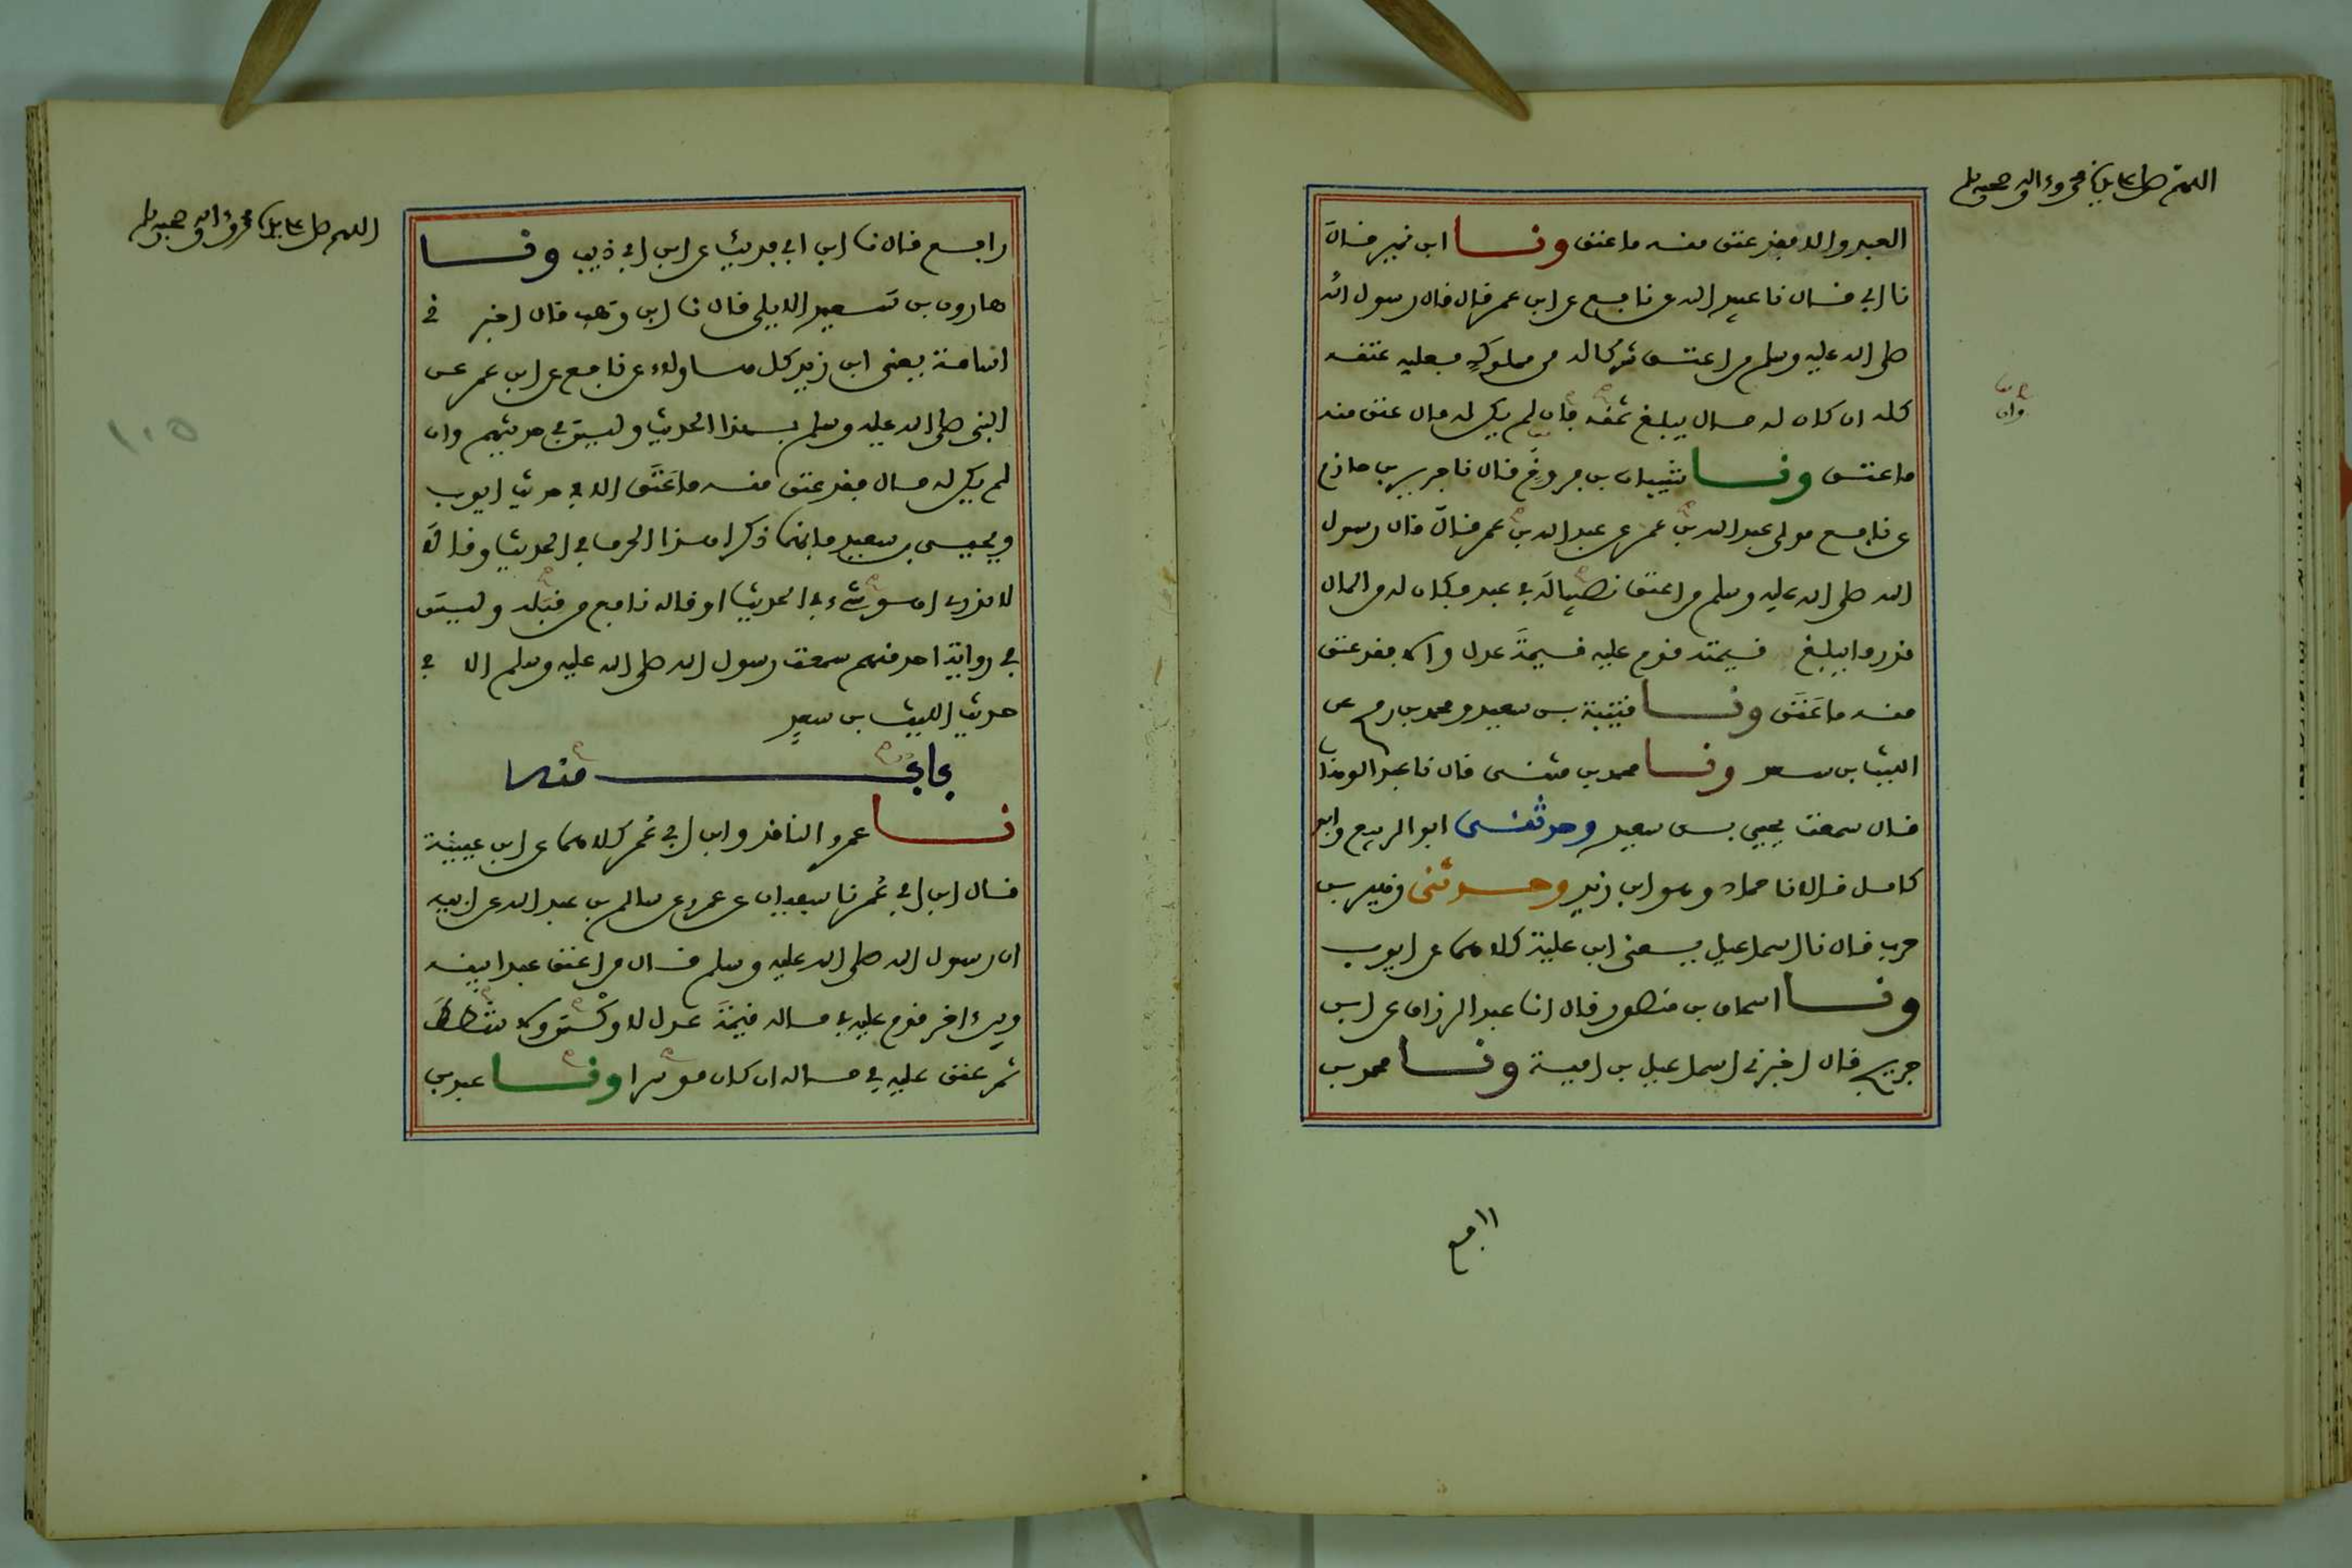 اللهم صل على سيدنا محمد وءاله وصحبه وسلم
العبد والا فقد عتق منه ما عتق ونا ابن نمير قال
نا ابي قال نا عبيد الله عن نافع عن ابن عمر قال قال رسول الله
صلى الله عليه وسلم من اعتق شركا له من مملوك فعليه عتقه
كله ان كان له مال يبلغ ثمنه فان لم يكن له مال عتق منه
وان
ما عتق ونا شيبان بن فروخ قال نا جرير بن حازم
عن نافع مولى عبد الله بن عمر عن عبد الله بن عمر قال قال رسول
الله صلى الله عليه وسلم من اعتق نصيبا له في عبد فكان له من المال
قدر ما يبلغ قيمته قوم عليه قيمة عدل والا فقد عتق
منه ما عتق ونا قتيبة بن سعيد ومحمد بن رمح عن
الليث بن سعد ونا محمد بن مثنى قال نا عبد الوهاب
قال سمعت يحيى بن سعيد وحدثنى ابو الربيع وابو
كامل قالا نا حماد وهو ابن زيد وحدثنى زهير بن
حرب قال نا اسماعيل يعنى ابن علية كلاهما عن ايوب
ونا اسحاق بن منصور قال انا عبد الرزاق عن ابن
جريج قال اخبرني اسماعيل بن امية ونا محمد بن
اللهم صل على سيدنا محمد وءاله وصحبه وسلم
رافع قال نا ابن ابي فديك عن ابن ابي ذيب ونا
هارون بن سعيد الايلي قال نا ابن وهب قال اخبر ني
اسامة يعنى ابن زيد كل هاولاء عن نافع عن ابن عمر عن
النبى صلى الله عليه وسلم بهذا الحديث وليس في حديثهم وان
١٠٥
لم يكن له مال فقد عتق منه ما عتق الا في حديث ايوب
ويحيى بن سعيد فانهما ذكرا هذا الحرف في الحديث وقالا
لا ندري اهو شيء في الحديث او قاله نافع من قبله وليس
في رواية احد منهم سمعت رسول الله صلى الله عليه وسلم الا في
حديث الليث بن سعد
باب منه
نا عمرو الناقد وابن ابي عمر كلاهما عن ابن عيينة
قال ابن ابي عمر نا سفيان عن عمرو عن سالم بن عبد الله عن ابيه
ان رسول الله صلى الله عليه وسلم قال من اعتق عبدا بينه
وبين ءاخر قوم عليه في ماله قيمة عدل لا وكس ولا شطط
ثم عتق عليه في ماله ان كان موسرا ونا عبد بن